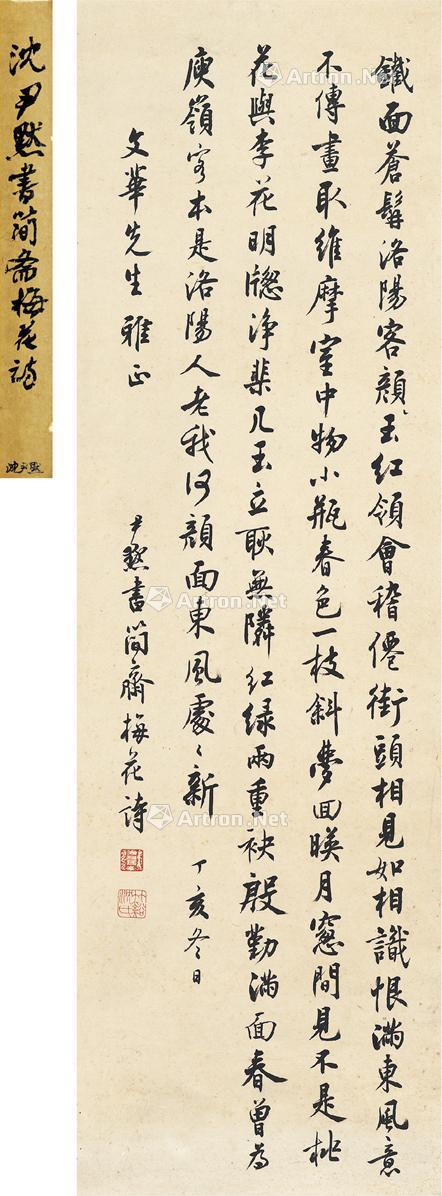 鐵面蒼髯洛陽客顏、玉紅領會稽僊街頭相見如相識恨滿東風意
不傳畫取維摩室中物小瓶春色一枝斜夢回暎月窻間見不是桃
花與李花明牕淨棐几玉立耿無隣紅緑兩重袂殷勤滿面春曾為
庾嶺客本是洛陽人老我何顏面東風處、新 丁亥冬日
文華先生雅正
尹默書簡齋梅花詩
竹谿沈氏
沈尹默書簡齋梅花詩
沈尹默
Artron.Net